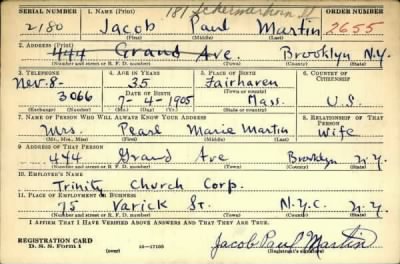 SERIAL NUMBER 1. NAME (Print) 181 Schermerhorn St ORDER NUMBER
2180 Jacob Paul Martin 2655
(First) (Middle) (Last)
2. ADDRESS (Print)
444 Grand Ave. Brooklyn N.Y.
(Number and street or R. F. D. number) (Town) (County) (State)
3. TELEPHONE 4. AGE IN YEARS 5. PLACE OF BIRTH 6. COUNTRY OF CITIZENSHIP
Nev. 8- 35 Fairhaven
DATE OF BIRTH
3066 7-4-1905 Mass. U.S.
(Exchange) (Number) (Mo.) (Day) (Yr.) (State or country)
7. NAME OF PERSON WHO WILL ALWAYS KNOW YOUR ADDRESS 8. RELATIONSHIP OF THAT PERSON
Mrs. Pearl Marie Martin Wife
(Mr., Mrs., Miss) (First) (Middle) (Last)
9. ADDRESS OF THAT PERSON
444 Grand Ave Brooklyn N.Y.
(Number and street or R. F. D. number) (Town) (County) (State)
10. EMPLOYER'S NAME
Trinity Church Corp.
11. PLACE OF EMPLOYMENT OR BUSINESS
75 Varick St. N.Y.C. N.Y.
(Number and street or R. F. D. number) (Town) (County) (State)
I AFFIRM THAT I HAVE VERIFIED ABOVE ANSWERS AND THAT THEY ARE TRUE.
REGISTRATION CARD
D. S. S. Form 1 16-17105 Jacob Paul Martin
(Registrant's signature)